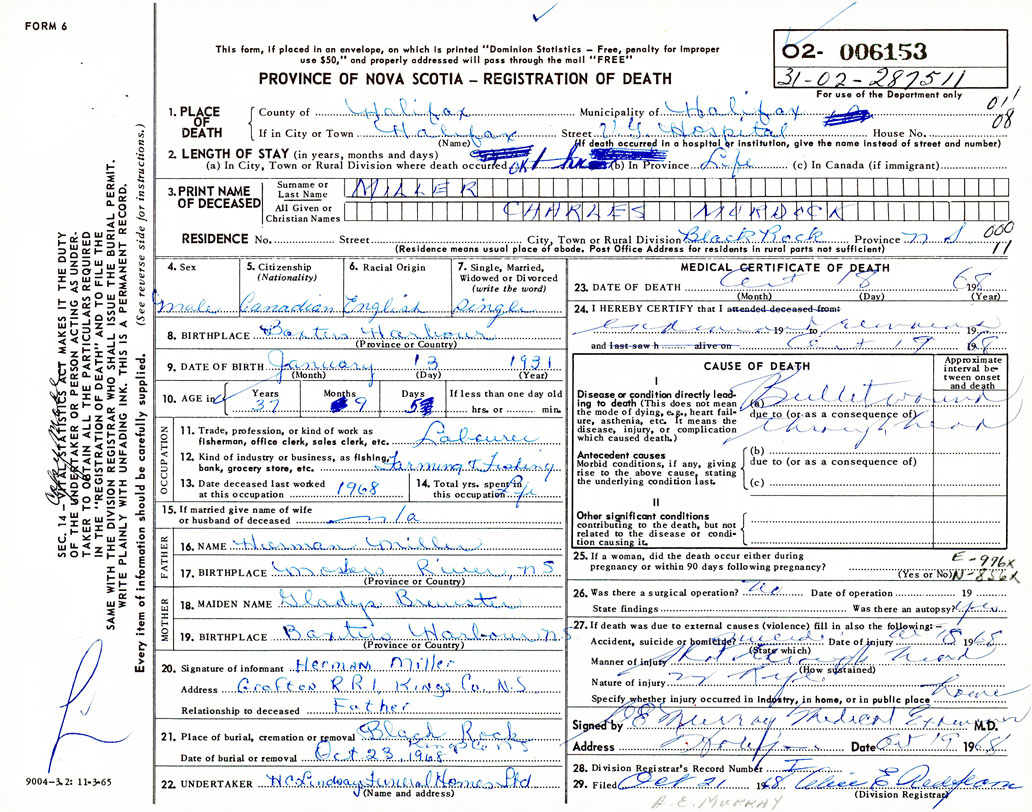 FORM 6
This form, if placed in an envelope, on which is printed "Dominion Statistics – Free, penalty for improper
use $50," and properly addressed will pass through the mail "FREE"
PROVINCE OF NOVA SCOTIA – REGISTRATION OF DEATH
02- 006153
31-02-287511
For use of the Department only
011
08
1. PLACE OF DEATH
County of Halifax Municipality of Halifax
If in City or Town Halifax Street V.G. Hospital House No.
(Name) (If death occurred in a hospital or institution, give the name instead of street and number)
2. LENGTH OF STAY (in years, months and days)
(a) In City, Town or Rural Division where death occurred (b) In Province Life (c) In Canada (if immigrant)
3. PRINT NAME OF DECEASED
Surname or Last Name MILLER
All Given or Christian Names CHARLES MURDOCK
RESIDENCE No. Street City, Town or Rural Division Black Rock Province N S
(Residence means usual place of abode. Post Office Address for residents in rural parts not sufficient)
000
11
4. Sex Male
5. Citizenship (Nationality) Canadian
6. Racial Origin English
7. Single, Married, Widowed or Divorced (write the word) Single
8. BIRTHPLACE Baxters Harbour
(Province or Country)
9. DATE OF BIRTH January 13 1931
(Month) (Day) (Year)
10. AGE in Years 37 Months 9 Days 5 If less than one day old hrs. or min.
OCCUPATION
11. Trade, profession, or kind of work as fisherman, office clerk, sales clerk, etc. Labourer
12. Kind of industry or business, as fishing, bank, grocery store, etc. Farming & Fishing
13. Date deceased last worked at this occupation 1968
14. Total yrs. spent in this occupation Life
15. If married give name of wife or husband of deceased n/a
FATHER
16. NAME Herman Miller
17. BIRTHPLACE Moshers River, NS
(Province or Country)
MOTHER
18. MAIDEN NAME Gladys Brewster
19. BIRTHPLACE Baxters Harbour, NS
(Province or Country)
20. Signature of informant Herman Miller
Address Grafton RR1, Kings Co. N.S
Relationship to deceased Father
21. Place of burial, cremation or removal Black Rock
Kings Co NS
Date of burial or removal Oct 23, 1968
22. UNDERTAKER H.C. Lindsay Funeral Homes Ltd
(Name and address)
MEDICAL CERTIFICATE OF DEATH
23. DATE OF DEATH Oct 18 1968
(Month) (Day) (Year)
24. I HEREBY CERTIFY that I attended deceased from:
19 to 19
and last saw h alive on Oct 19 1968
CAUSE OF DEATH
Approximate interval between onset and death
I
Disease or condition directly leading to death (This does not mean the mode of dying, e.g., heart failure, asthenia, etc. It means the disease, injury, or complication which caused death.)
(a) Bullet wound
due to (or as a consequence of)
through head
Antecedent causes
Morbid conditions, if any, giving rise to the above cause, stating the underlying condition last.
(b)
due to (or as a consequence of)
(c)
II
Other significant conditions
contributing to the death, but not related to the disease or condition causing it.
25. If a woman, did the death occur either during pregnancy or within 90 days following pregnancy?
(Yes or No)
E-976X
N-856X
26. Was there a surgical operation? No Date of operation 19
State findings Was there an autopsy? yes
27. If death was due to external causes (violence) fill in also the following:-
Accident, suicide or homicide? Suicide Date of injury Oct 18 1968
(State which)
Manner of injury Shot through head
(How sustained)
Nature of injury 22 Rifle
Specify whether injury occurred in industry, in home, or in public place home
Signed by Murray Medical Examiner M.D.
Address Date Oct 19 1968
28. Division Registrar's Record Number
29. Filed Oct 21 1968
(Division Registrar)
A. E. MURRAY
SEC. 14 – VITAL STATISTICS ACT MAKES IT THE DUTY
OF THE UNDERTAKER OR PERSON ACTING AS UNDER-
TAKER TO OBTAIN ALL THE PARTICULARS REQUIRED
IN THE "REGISTRATION OF DEATH" AND TO FILE THE
SAME WITH THE DIVISION REGISTRAR WHO SHALL ISSUE THE BURIAL PERMIT.
WRITE PLAINLY WITH UNFADING INK. THIS IS A PERMANENT RECORD.
Every item of information should be carefully supplied. (See reverse side for instructions.)
9004-3.2: 11-3-65